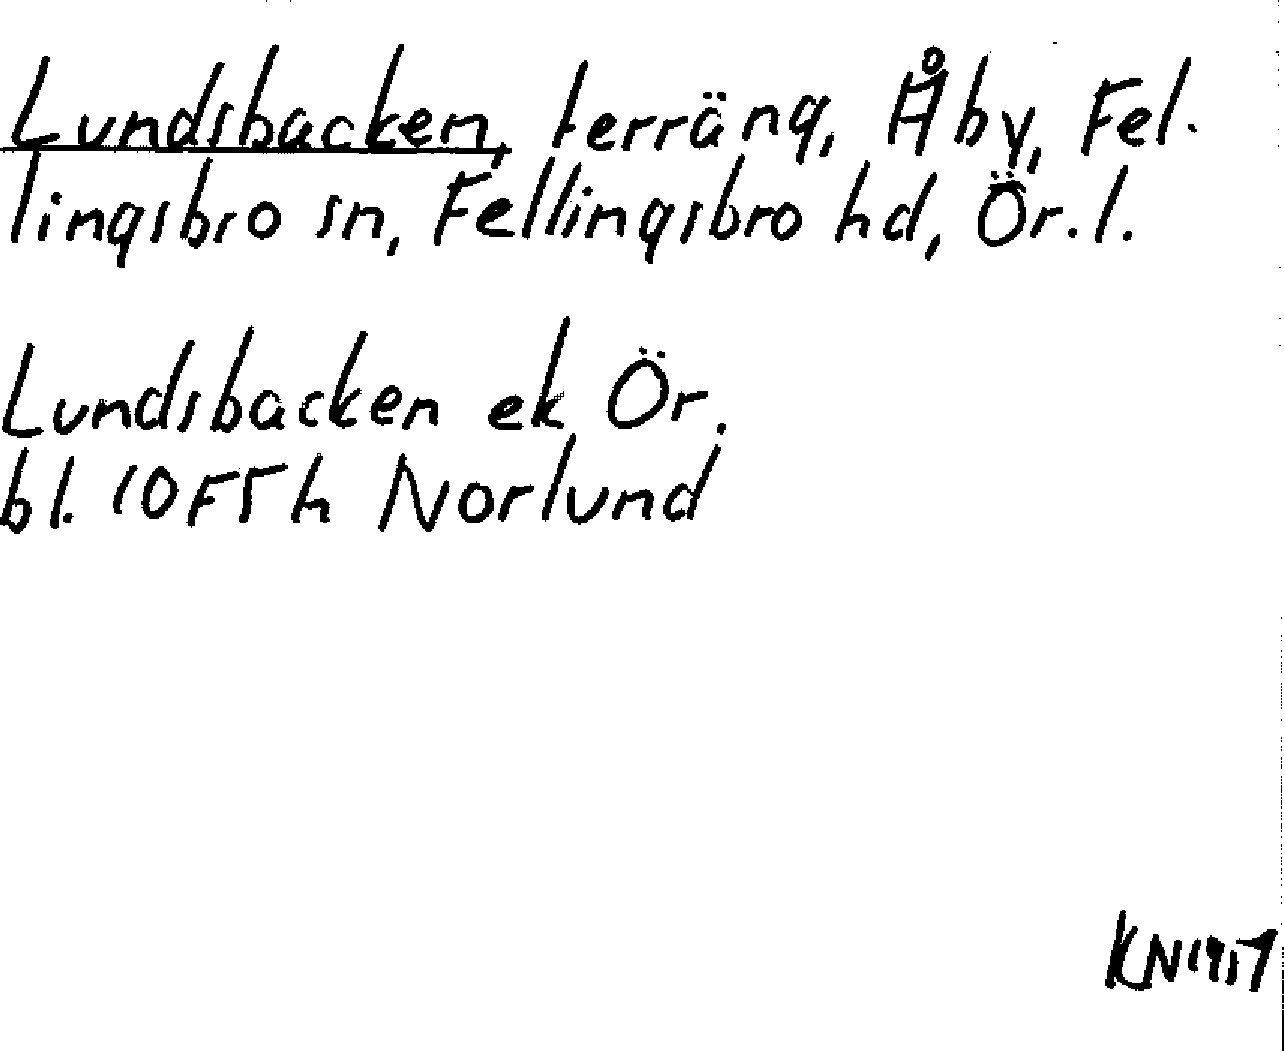 Lundsbacken, terräng, Åby, Fel-
lingsbro sn, Fellingsbro hd, Ör. l.
Lundsbacken ek Ör.
bl. 10F5h Norlund